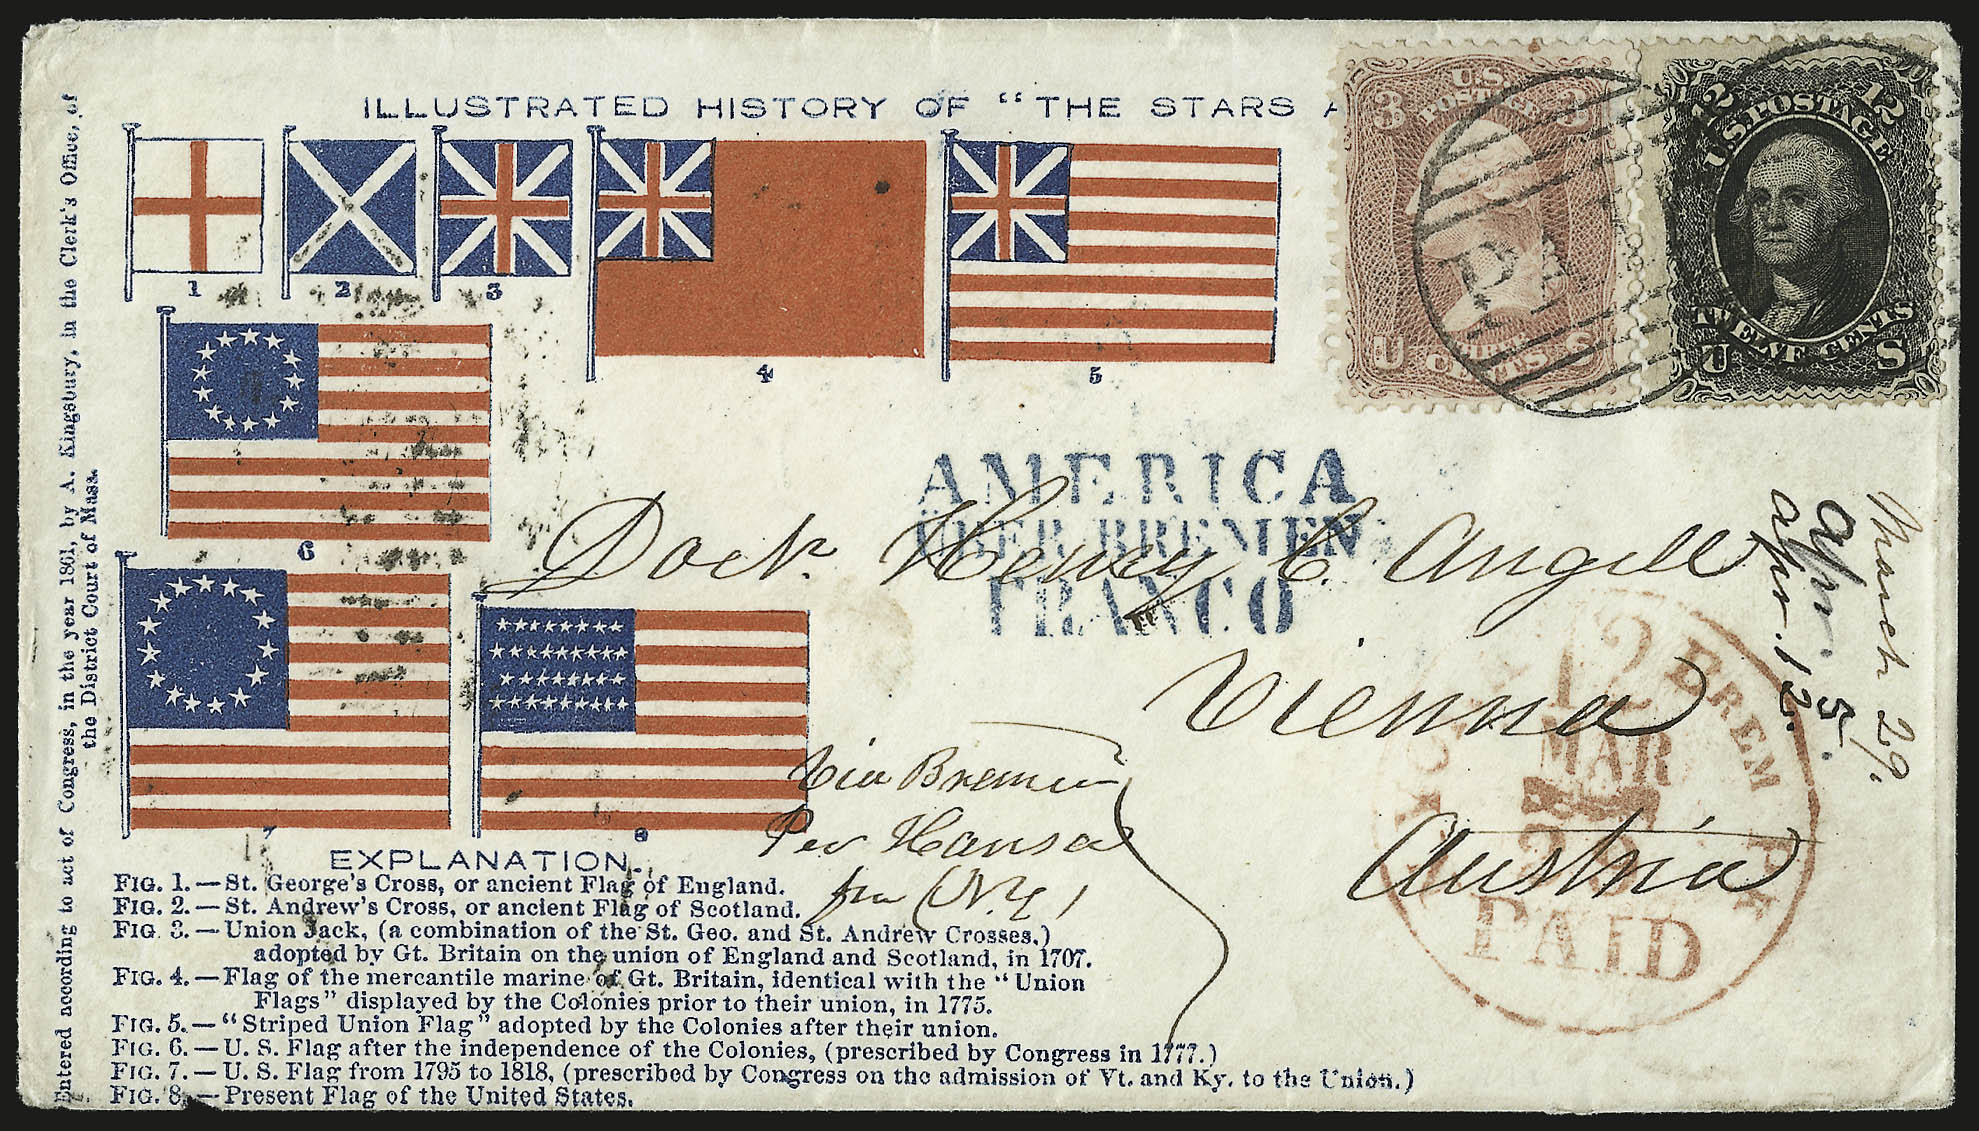 ILLUSTRATED HISTORY OF "THE STARS A
1
2
3
4
5
6
7
8
Entered according to act of Congress, in the year 1861, by A. Kingsbury, in the Clerk's Office, of
the District Court of Mass.
3 3
U.S.
POSTAGE
THREE
U CENTS. S
PA
12 12
U.S. POSTAGE
TWELVE CENTS
U S
AMERICA
ÜBER BREMEN
FRANCO
Doct. Henry C. Angell
Vienna
Austria
Via Bremen
Per Hansa
fm (N.Y.)
March 29.
Apr. 5.
Apr. 12.
BREM PK
12
MAR
PAID
EXPLANATION.
FIG. 1.—St. George's Cross, or ancient Flag of England.
FIG. 2.—St. Andrew's Cross, or ancient Flag of Scotland.
FIG. 3.—Union Jack, (a combination of the St. Geo. and St. Andrew Crosses,)
adopted by Gt. Britain on the union of England and Scotland, in 1707.
FIG. 4.—Flag of the mercantile marine of Gt. Britain, identical with the "Union
Flags" displayed by the Colonies prior to their union, in 1775.
FIG. 5.—"Striped Union Flag" adopted by the Colonies after their union.
FIG. 6.—U. S. Flag after the independence of the Colonies, (prescribed by Congress in 1777.)
FIG. 7.—U. S. Flag from 1795 to 1818, (prescribed by Congress on the admission of Vt. and Ky. to the Union.)
FIG. 8.—Present Flag of the United States.